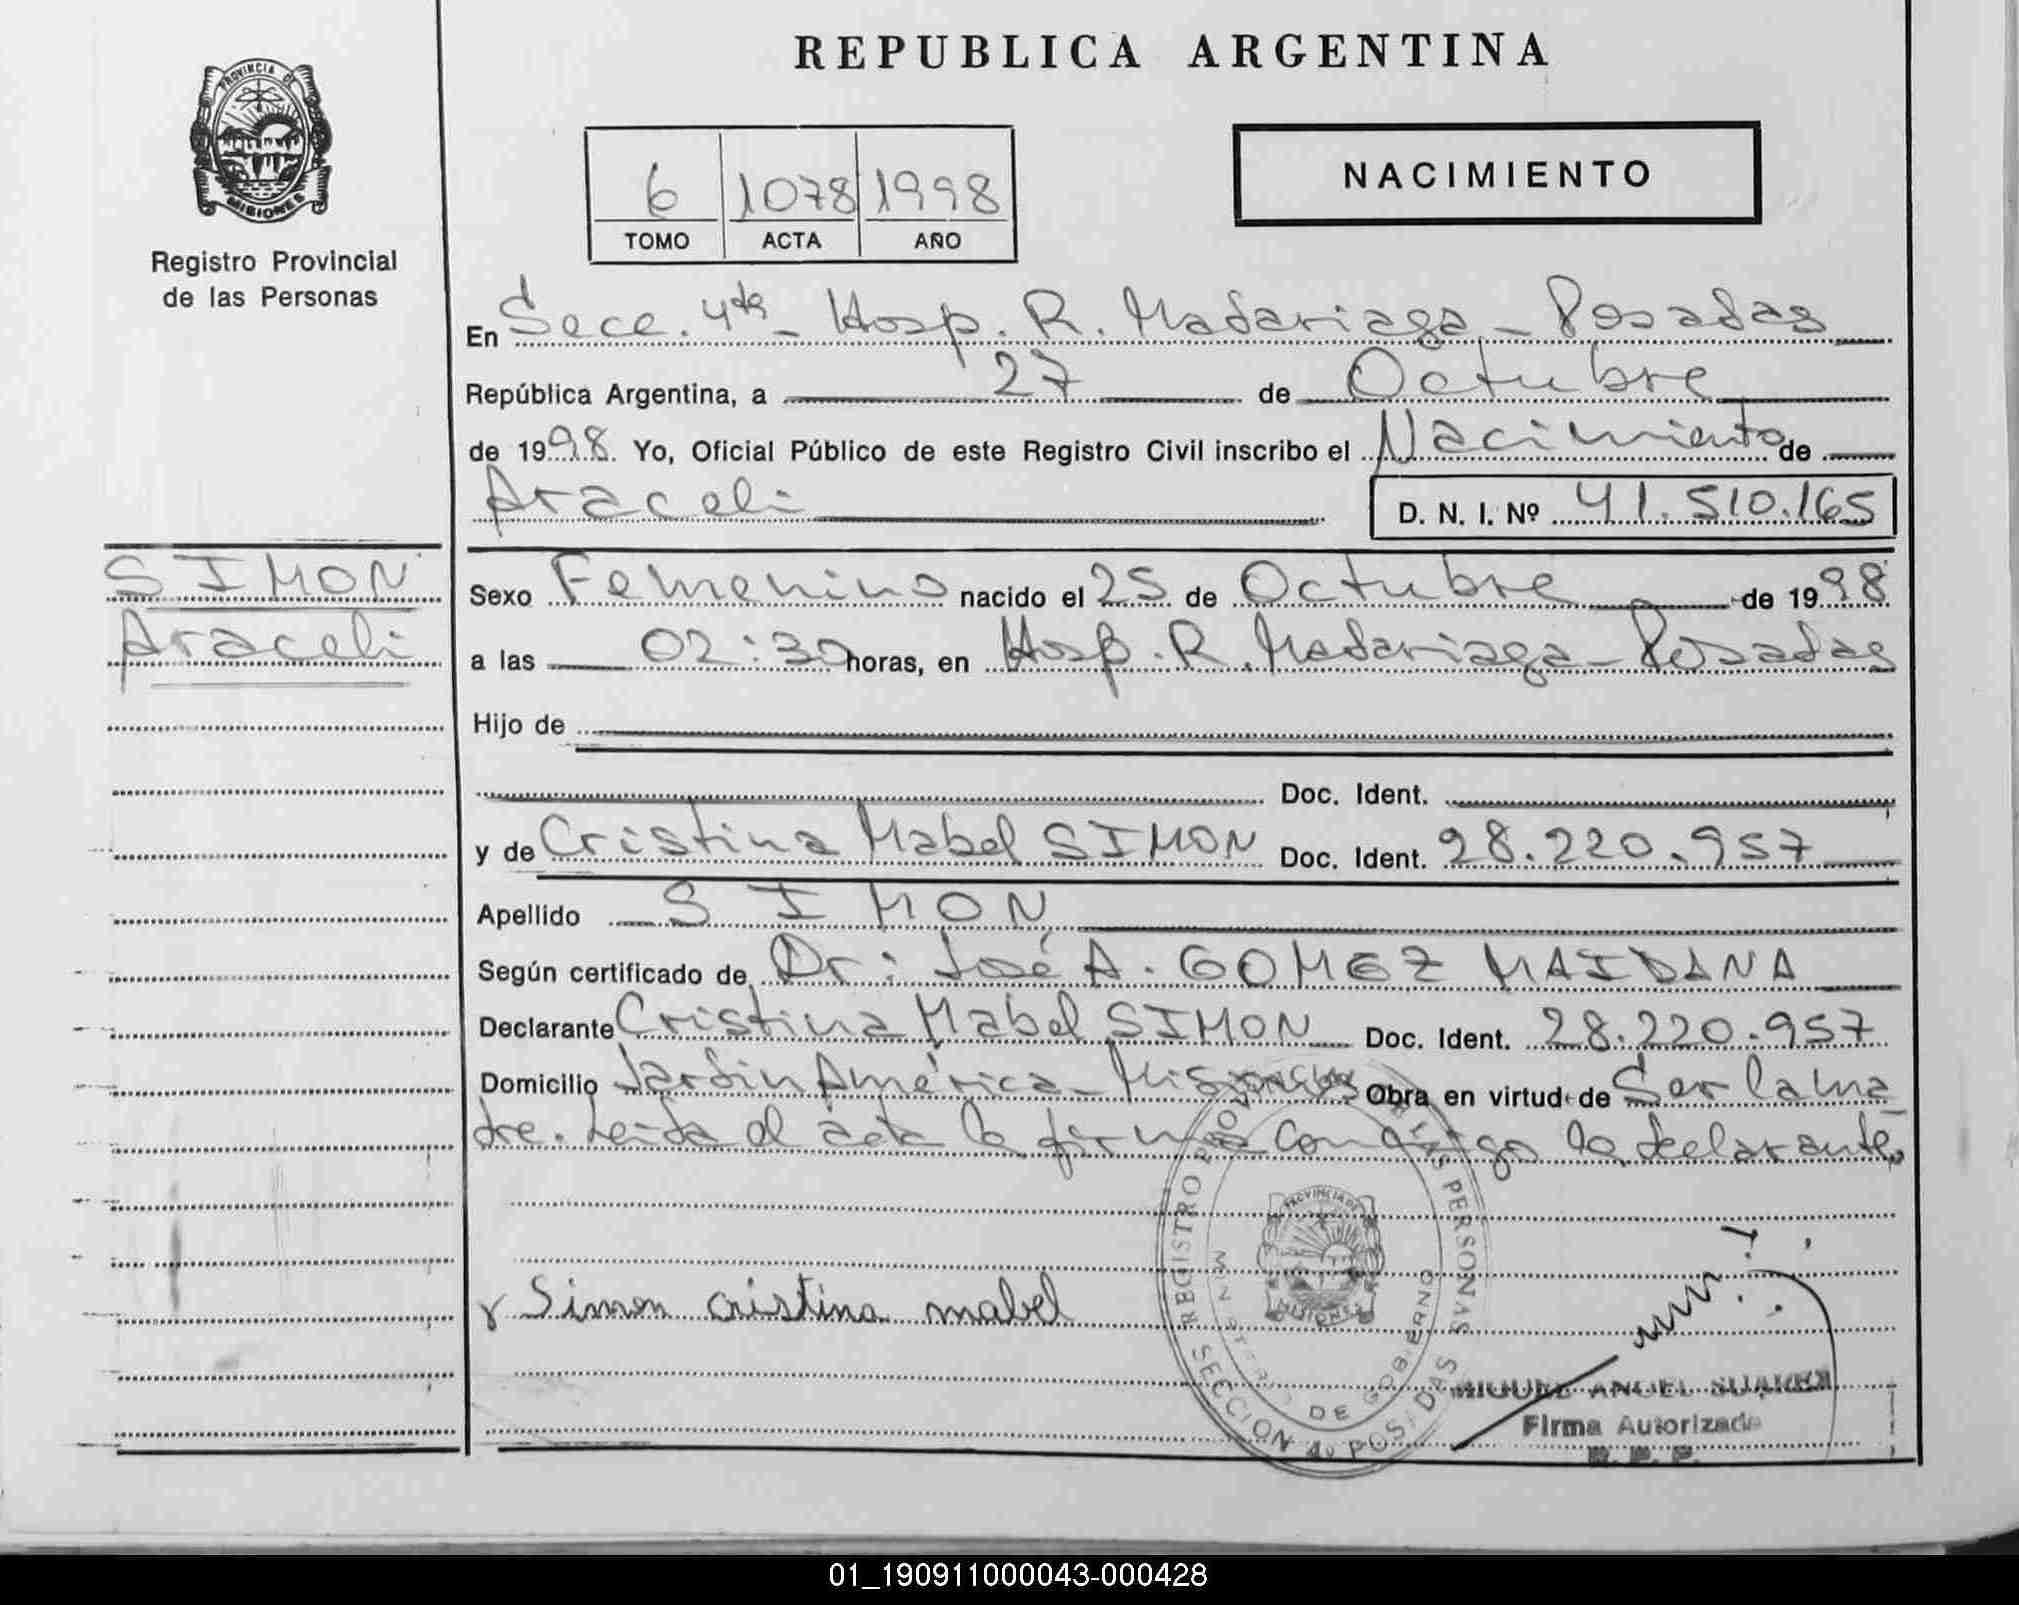 REPUBLICA ARGENTINA
PROVINCIA DE
MISIONES
Registro Provincial
de las Personas
6 1078 1998
TOMO ACTA AÑO
NACIMIENTO
En Secc. 4ta - Hosp. R. Madariaga - Posadas
República Argentina, a 27 de Octubre
de 1998. Yo, Oficial Público de este Registro Civil inscribo el Nacimiento de
Araceli D. N. I. Nº 41.510.165
SIMON
Araceli
Sexo Femenino nacido el 25 de Octubre de 1998
a las 02:30 horas, en Hosp. R. Madariaga - Posadas
Hijo de
Doc. Ident.
y de Cristina Mabel SIMON Doc. Ident. 28.220.957
Apellido SIMON
Según certificado de Dr: José A. GOMEZ MAIDANA
Declarante Cristina Mabel SIMON Doc. Ident. 28.220.957
Domicilio Jardín América - Misiones Obra en virtud de Ser la ma
dre. Leída el acta la firma conmigo la declarante.
REGISTRO PERSONAS
PROVINCIA DE
MISIONES
DE GOBIERNO
SECCION 4º POSADAS
Simon cristina mabel
MIGUEL ANGEL SUAREZ
Firma Autorizada
R. P. P.
01_190911000043-000428